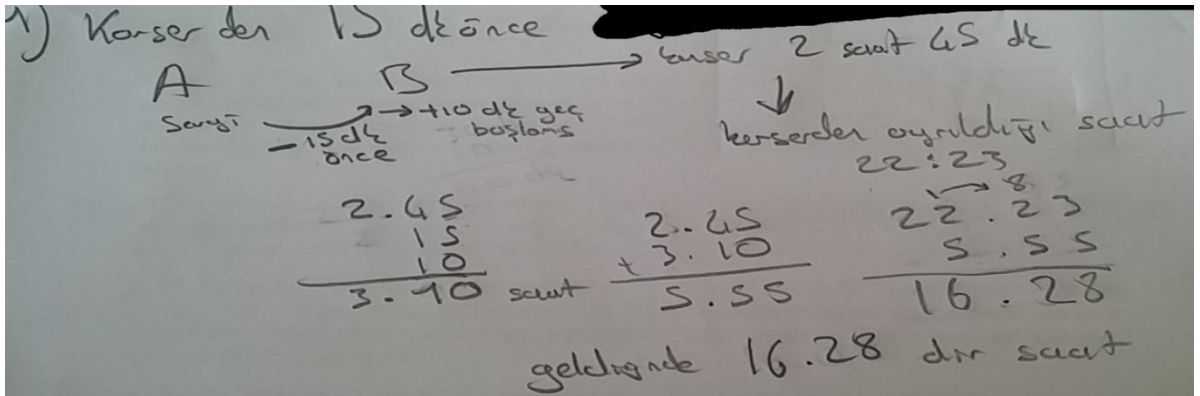 1) Konser den 15 dk önce
konser 2 saat 45 dk
A B
Sergi → +10 dk geç
-15 dk başlams
önce
konserden ayrıldığı saat
22:23
2.45
15
10
3.10 saat
2.45
+ 3.10
5.55
8
22.23
5.55
16.28
geldiğinde 16.28 dir saat